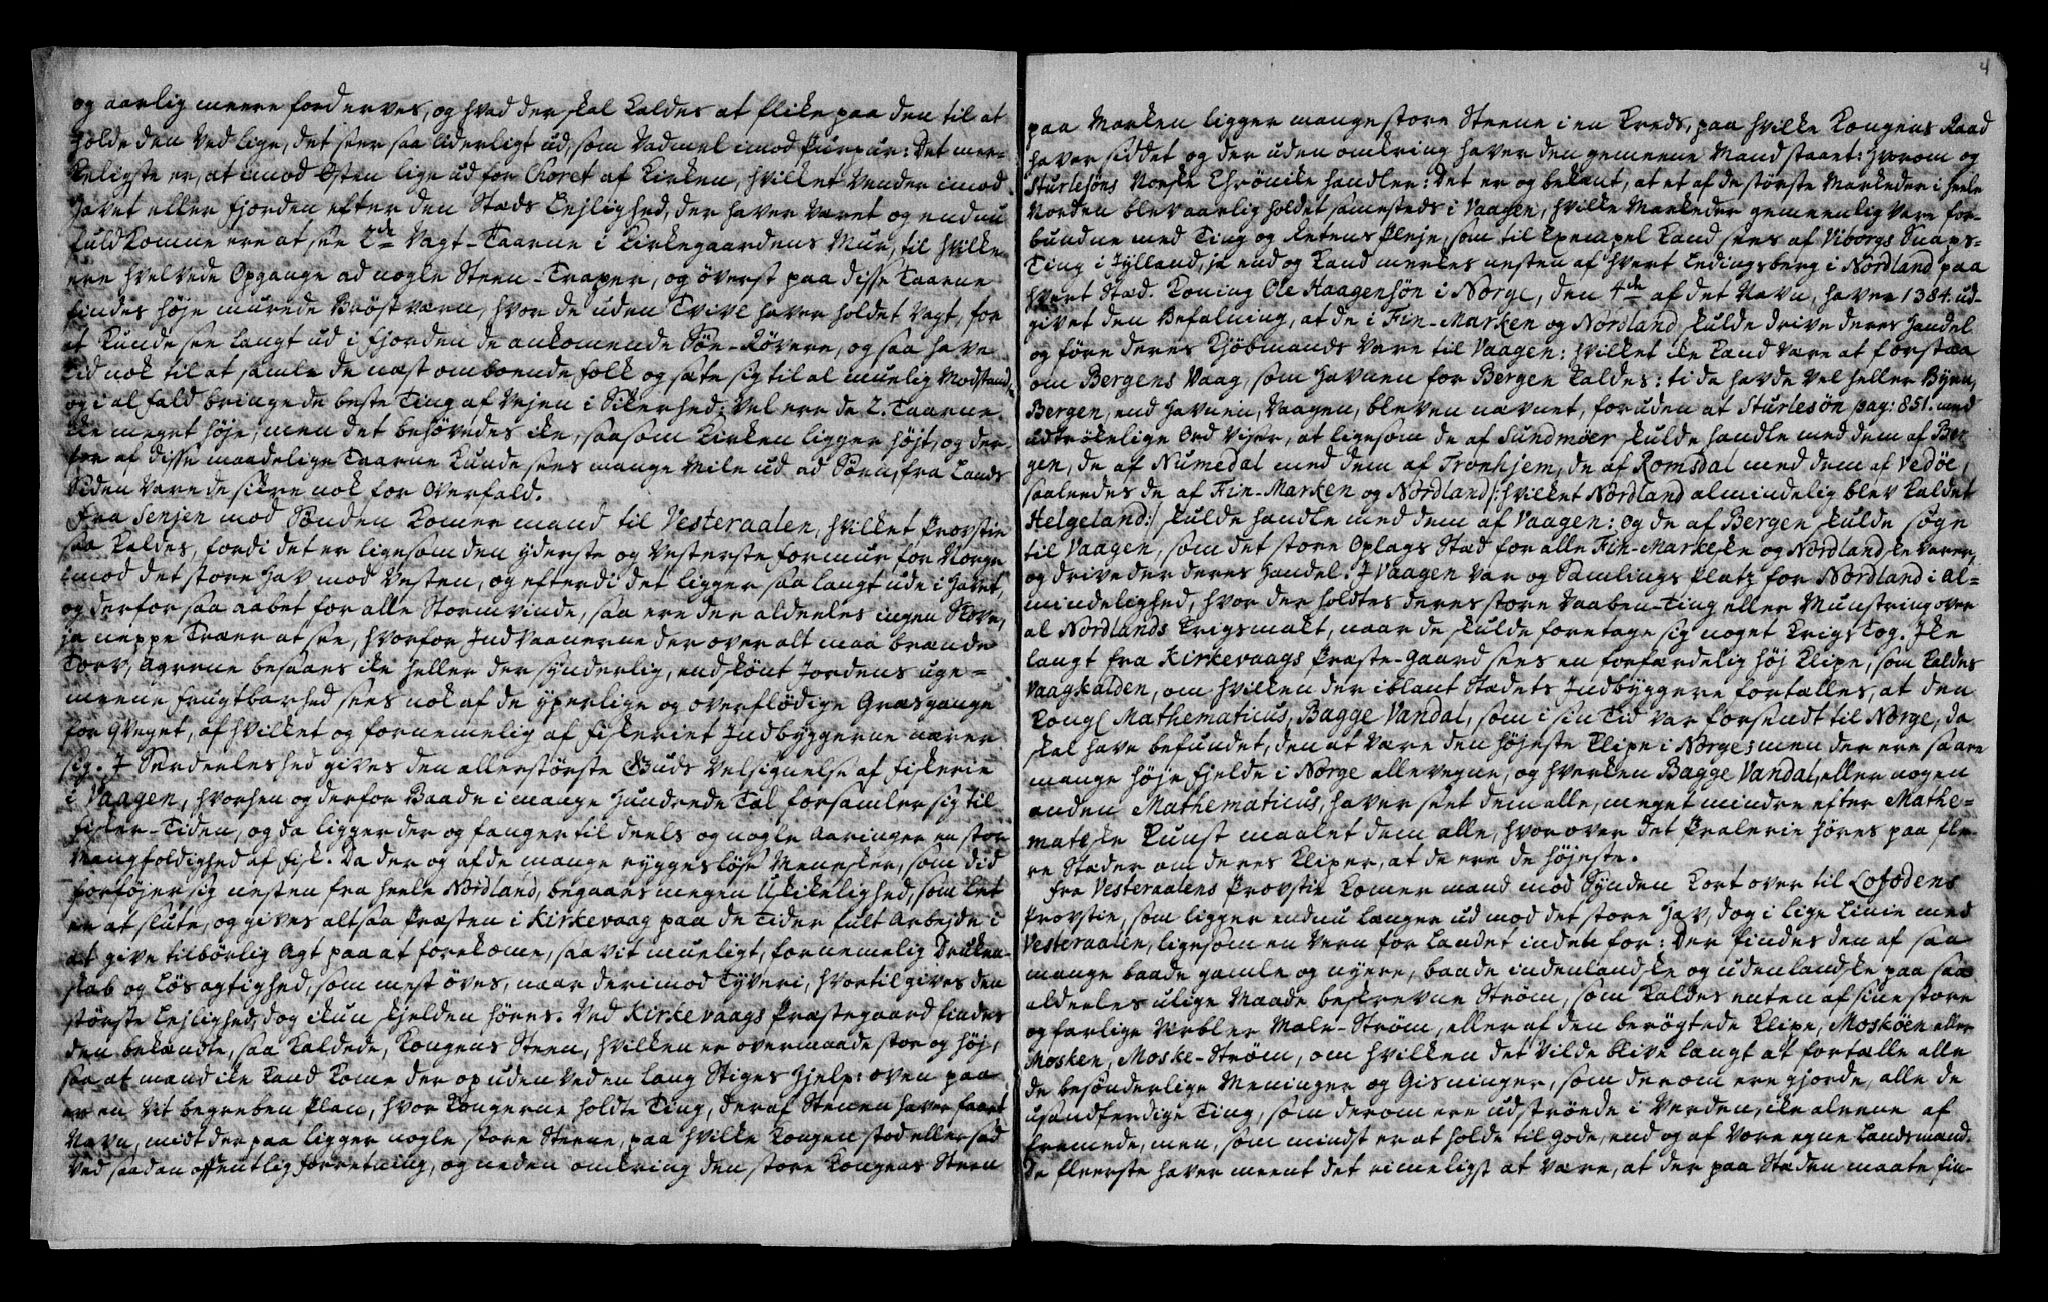 og aarlig meere forderves, og hved der skal kaldes at flike paa den til at
holde den ved lige, det seer saa liderligt ud, som Vadmel imod Purpur: Det mer-
keligste er, at imod Østen lige ud for Choret af Kirken, hvilket vender imod
Havet eller Fjorden efter den Stæds Lejlighed, der haver været og endnu
fuldkomne ere at see 2de Vagt-Taarne i Kirkegaardens Mur, til hvilke
ere hvelvede Opgange ad nogle Steen-Traper, og øverst paa disse Taarne
findes høje murede Brøstværn, hvor de uden Tvivl haver holdet Vagt, for
at kunde see langt ud i Fjorden de ankomende Søe-Røvere, og saa have
tid nok til at samle de næst omboende Folk og sæte sig til al muelig Modstand,
og i al fald bringe de beste Ting af Vejen i Sikerhed; Vel ere de 2. Taarne
ike meget høje, men det behøvedes ike, saasom Kirken ligger højt, og der-
for af disse maadelige Taarne kunde sees mange Mile ud ad Søen, fra Lands
Siden vare de sikre nok for Overfald.
Fra Senjen mod Sønden komer mand til Vesteraalen, hvilket Provstie
saa kaldes, fordi det er ligesom den yderste og Vesterste formur for Norge
imod det store Hav mod Vesten, og efterdi det ligger saa langt ude i Havet,
og derfor saa aabet for alle Stormvinde, saa ere der aldeeles ingen Skove,
ja neppe Træer at see, hvorfor Indvaanerne der over alt maa brænde
Torv, Agrene besaaes ike heller der synderlig, endskiønt Jordens uge-
meene Frugtbarhed sees nok af de yperlige og overflødige Græsgange
for Qveget, af hvilket og fornemelig af Fiskeriet Indbyggerne nærer
sig. I Særdeeleshed gives den allerstørste Guds Velsignelse af Fiskerie
i Vaagen, hvorhen og derfor Baade i mange Hundrede Tal forsamler sig til
Fisker-Tiden, og da ligger der og fanger til deels og nogle Aaringer en stor
Mangfoldighed af Fisk. Da der og af de mange ryggesløse Menesker, som did
forføjer sig nesten fra heele Nordland, begaaes megen Uskikelighed, som let
er at slute, og gives altsaa Præsten i Kirkevaag paa de Tider fult Arbejde i
at give tilbørlig Agt paa at forekome, saa vit mueligt, fornemelig Druken-
skab og Løsagtighed, som mest øves, naar derimod Tyveri, hvortil gives den
største Lejlighed, dog ikun sjelden høres. Ved Kirkevaags Præstegaard findes
den bekandte, saa kaldede, Kongens Steen, hvilken er overmaade stor og høj,
saa at mand ike kand kome der op uden ved en lang Stiges Hjelp: oven paa
er en vit begreben Plan, hvor Kongerne holdte Ting, deraf Stenen haver faaet
Navn, midt der paa ligger nogle store Steene, paa hvilke Kongen stod eller sad
ved saadan offentlig Forretning, og neden omkring den store Kongens Steen
4
paa Marken ligger mange store Steene i en Kreds, paa hvilke Kongens Raad
haver siddet og der uden omkring haver den gemeene Mand staaet: Hvorom og
Sturlesøns Norske Chrønike handler: Det er og bekant, at et af de største Markeder i heele
Norden blev aarlig holdet samesteds i Vaagen, hvilke Markeder gemeenlig vare for-
bundne med Ting og Retens Pleje, som til Exempel kand sees af Viborgs Snaps-
Ting i Jylland, ja end og kand merkes nesten af hvert Ledingsberg i Nordland paa
hvert Stæd. Koning Ole Haagensøn i Norge, den 4de af det Navn, haver 1384. ud-
givet den Befalning, at de i Fin-Marken og Nordland skulde drive deres Handel
og føre deres Kjøbmands Vare til Vaagen: hvilket ike kand være at forstaa
om Bergens Vaag, som Havnen for Bergen kaldes: ti da havde vel heller Byen,
Bergen, end Havnen, Vaagen, bleven nævnet, foruden at Sturlesøn pag: 851. med
udtrökelige Ord viser, at ligesom de af Sundmøer skulde handle med dem af Ber-
gen, de af Numedal med dem af Tronhjem, de af Romsdal med dem af Vedøe,
saaledes de af Fin-Marken og Nordland /: hvilket Nordland almindelig blev kaldet
Helgeland :/ skulde handle med dem af Vaagen: og de af Bergen skulde søge
til Vaagen, som det store Oplags Stæd for alle Fin-Markske og Nordlandske Varer,
og drive der deres Handel. I Vaagen var og Samlings Platz for Nordland i al-
mindelighed, hvor der holdtes deres store Vaaben-Ting eller Munstring over
al Nordlands Krigsmakt, naar de skulde foretage sig noget Krigs Tog. Ike
langt fra Kirkevaags Præste-Gaard sees en forfærdelig høj Klipe, som kaldes
Vaagkalden, om hvilken der iblant Stædets Indbyggere fortælles, at den
Kongl Mathematicus, Bagge Vandal, som i sin Tid var forsendt til Norge, da
skal have befundet, den at være den højeste Klipe i Norge; men der ere saare
mange høje Fjelde i Norge allevegne, og hverken Bagge Vandal, eller nogen
anden Mathematicus, haver seet dem alle, meget mindre efter Mathe-
matiske Kunst maalet dem alle, hvorover det Pralerie høres paa fle-
re Stæder om deres Kliper, at de ere de højeste.
Fra Vesteraalens Provstie komer mand mod Synden kort over til Lofodens
Provstie, som ligger endnu længer ud mod det store Hav, dog i lige Linie med
Vesteraalen, ligesom en Vern for Landet inden for: Der findes den af saa
mange baade gamle og nyere, baade indenlandske og udenlandske paa saa
aldeeles ulige Maade beskrevne Strøm, som kaldes enten af sine store
og farlige Værbler Male-Strøm, eller af den berøgtede Klipe, Moskøen eller
Mosken, Moske-Strøm, om hvilken det vilde blive langt at fortælle alle
de besønderlige Meninger og Gisninger, som derom ere gjorde, alle de
usandferdige Ting, som derom ere udstrøede i Verden, ike aleene af
Fremede, men, som mindst er at holde til gode, end og af vore egne Landsmænd.
De fleerste haver meent det rimeligst at være, at der paa Stæden maate fin-